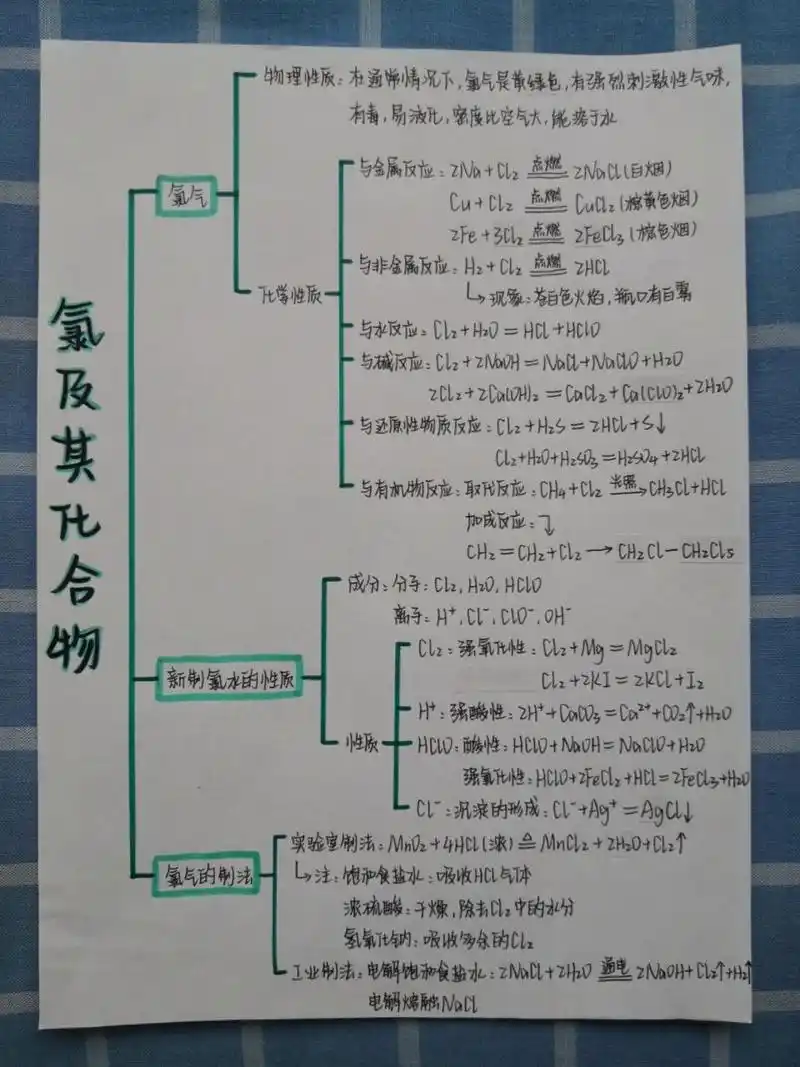 氯及其化合物
氯气
物理性质：在通常情况下，氯气是黄绿色，有强烈刺激性气味，
有毒，易液化，密度比空气大，能溶于水
化学性质
与金属反应：2Na+Cl₂ 点燃 2NaCl（白烟）
Cu+Cl₂ 点燃 CuCl₂（棕黄色烟）
2Fe+3Cl₂ 点燃 2FeCl₃（棕色烟）
与非金属反应：H₂+Cl₂ 点燃 2HCl
↳现象：苍白色火焰，瓶口有白雾
与水反应：Cl₂+H₂O=HCl+HClO
与碱反应：Cl₂+2NaOH=NaCl+NaClO+H₂O
2Cl₂+2Ca(OH)₂=CaCl₂+Ca(ClO)₂+2H₂O
与还原性物质反应：Cl₂+H₂S=2HCl+S↓
Cl₂+H₂O+H₂SO₃=H₂SO₄+2HCl
与有机物反应：取代反应：CH₄+Cl₂ 光照→ CH₃Cl+HCl
加成反应：↴
CH₂=CH₂+Cl₂→CH₂Cl-CH₂Cl₅
新制氯水的性质
成分：分子：Cl₂，H₂O，HClO
离子：H⁺，Cl⁻，ClO⁻，OH⁻
性质
Cl₂：强氧化性：Cl₂+Mg=MgCl₂
Cl₂+2KI=2KCl+I₂
H⁺：强酸性：2H⁺+CaCO₃=Ca²⁺+CO₂↑+H₂O
HClO：酸性：HClO+NaOH=NaClO+H₂O
强氧化性：HClO+2FeCl₂+HCl=2FeCl₃+H₂O
Cl⁻：沉淀的形成：Cl⁻+Ag⁺=AgCl↓
氯气的制法
实验室制法：MnO₂+4HCl(浓)≜MnCl₂+2H₂O+Cl₂↑
↳注：饱和食盐水：吸收HCl气体
浓硫酸：干燥，除去Cl₂中的水分
氢氧化钠：吸收多余的Cl₂
工业制法：电解饱和食盐水：2NaCl+2H₂O 通电 2NaOH+Cl₂↑+H₂↑
电解熔融NaCl